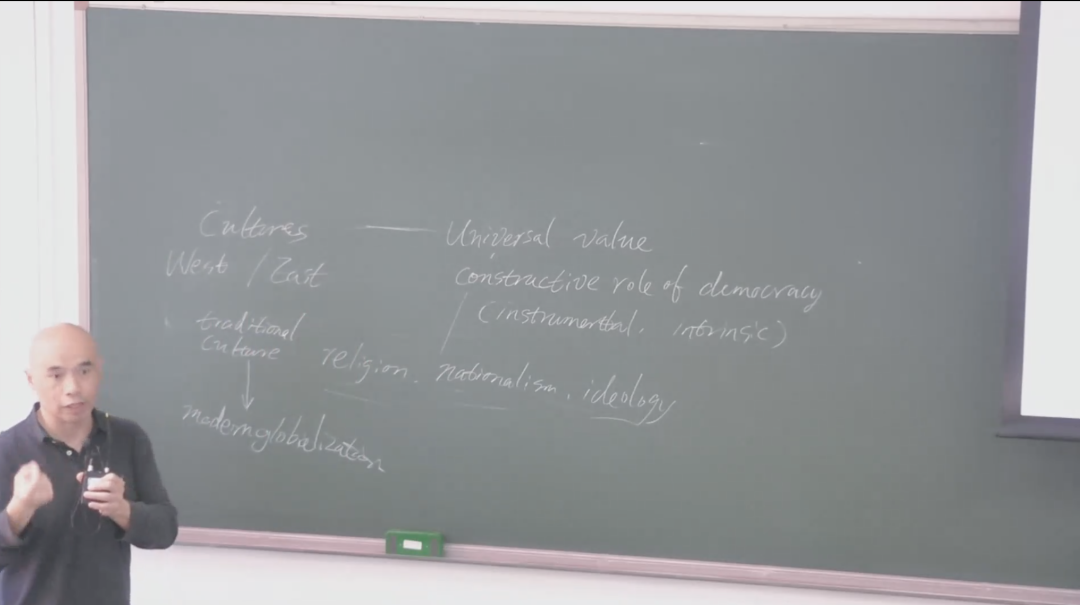 Cultures — Universal value
West / East
constructive role of democracy
(instrumental, intrinsic)
traditional
culture
religion, nationalism, ideology
modern globalization